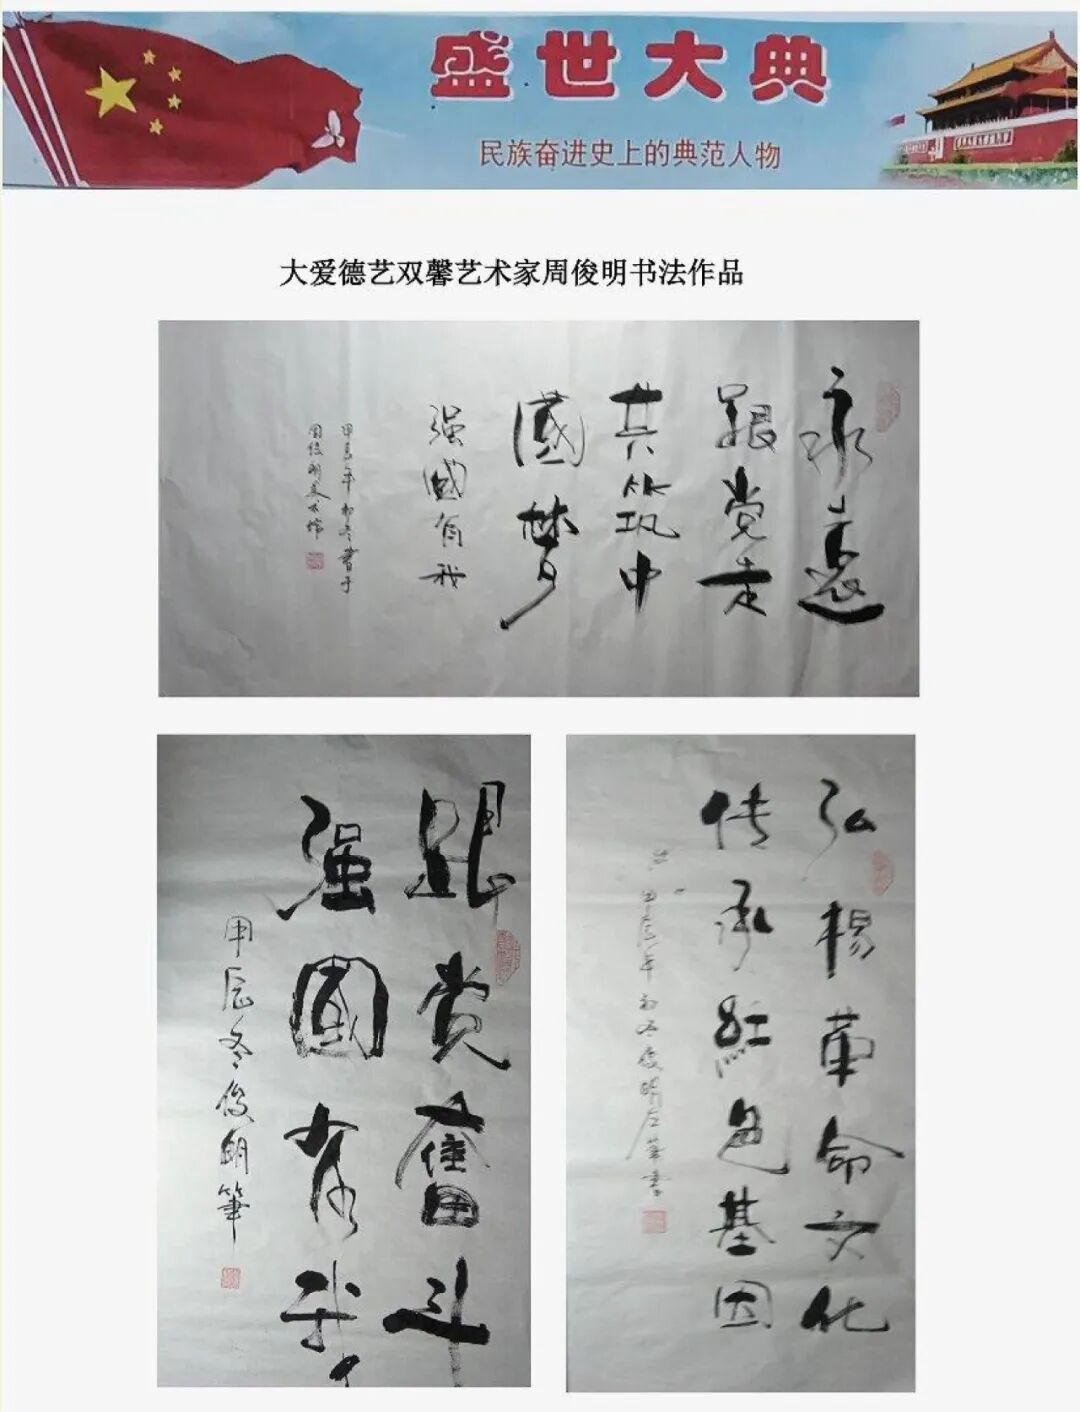 盛世大典
民族奋进史上的典范人物
大爱德艺双馨艺术家周俊明书法作品
永远
跟党走
共筑中
國梦
强國有我
甲辰年初冬書于
周俊明美术馆
跟党奮斗
强國有我
甲辰冬俊明筆
弘揚革命文化
传承紅色基因
甲辰年初冬俊明左筆書